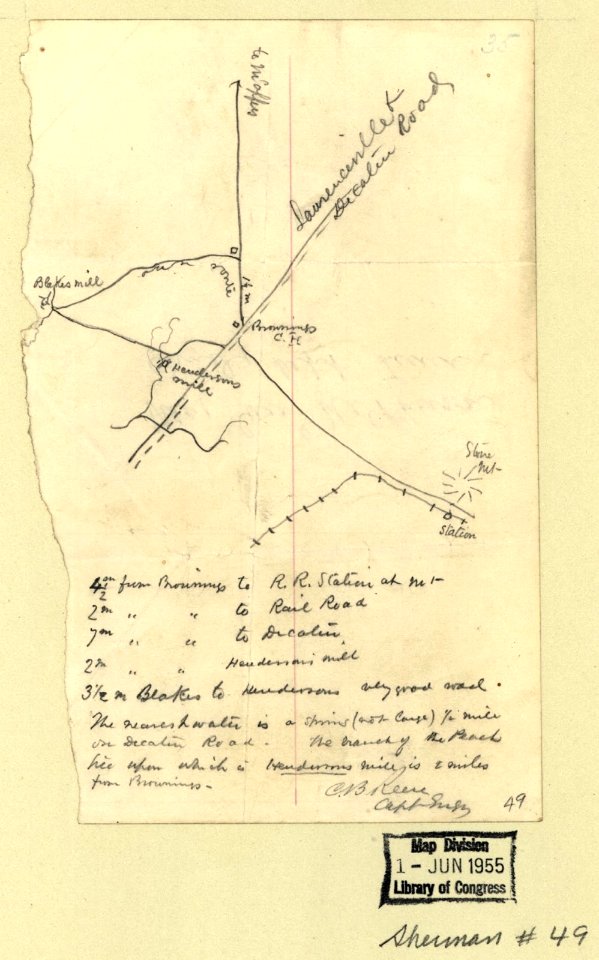 35
to McAffees
Lawrenceville &
Decatur Road
Blakes mill
route
1½ m
Brownings
C.H
Hendersons
mill
Stone
Mt
Station
4½ m from Brownings to R.R. Station at Mt
2m " " to Rail Road
7m " " to Decatur
2m " " Hendersons mill
3½ m Blakes to Hendersons very good road.
The nearest water is a spring (not large) ½ mile
on Decatur Road. The branch of the Peach
tree upon which is Hendersons mill is 2 miles
from Brownings -
C.B. Keene
Capt Engr
49
Map Division
1 - JUN 1955
Library of Congress
Sherman # 49